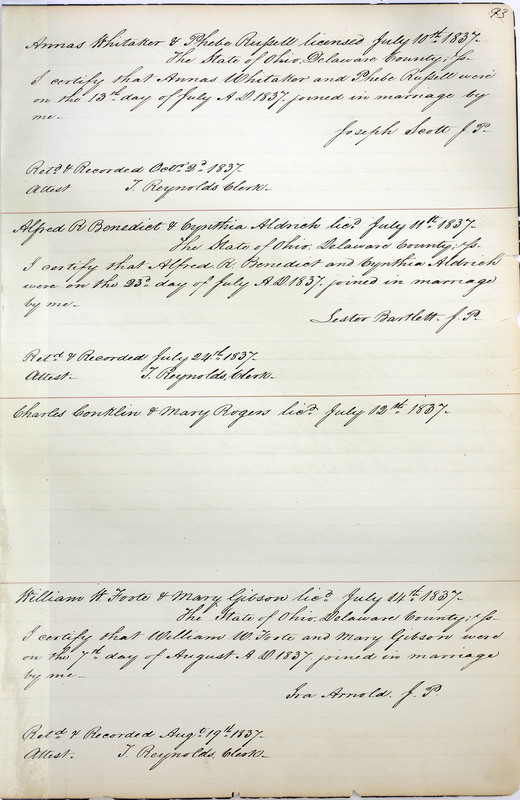 93
Annas Whitaker & Phebe Russell licensed July 10th 1837.
The State of Ohio, Delaware County; ss.
I certify that Annas Whitaker and Phebe Russell were
on the 13th day of July A.D. 1837. joined in marriage by
me—
Joseph Scott J P.
Retd & Recorded Octr 2d 1837.
Attest T. Reynolds Clerk.
Alfred R Benedict & Cynthia Aldrich licd July 11th 1837.
The State of Ohio, Delaware County; ss.
I certify that Alfred R. Benedict and Cynthia Aldrich
were on the 23d day of July A D 1837. joined in marriage
by me—
Lester Bartlett. J. P.
Retd & Recorded July 24th 1837.
Attest. T. Reynolds, Clerk.
Charles Conklin & Mary Rogers licd July 12th 1837.
William W Foote & Mary Gibson licd July 14th 1837.
The State of Ohio, Delaware County; ss.
I certify that William W. Foote and Mary Gibson were
on the 7th day of August A D 1837. joined in marriage
by me—
Ira Arnold. J. P.
Retd & Recorded Augt 19th 1837.
Attest. T. Reynolds, Clerk.